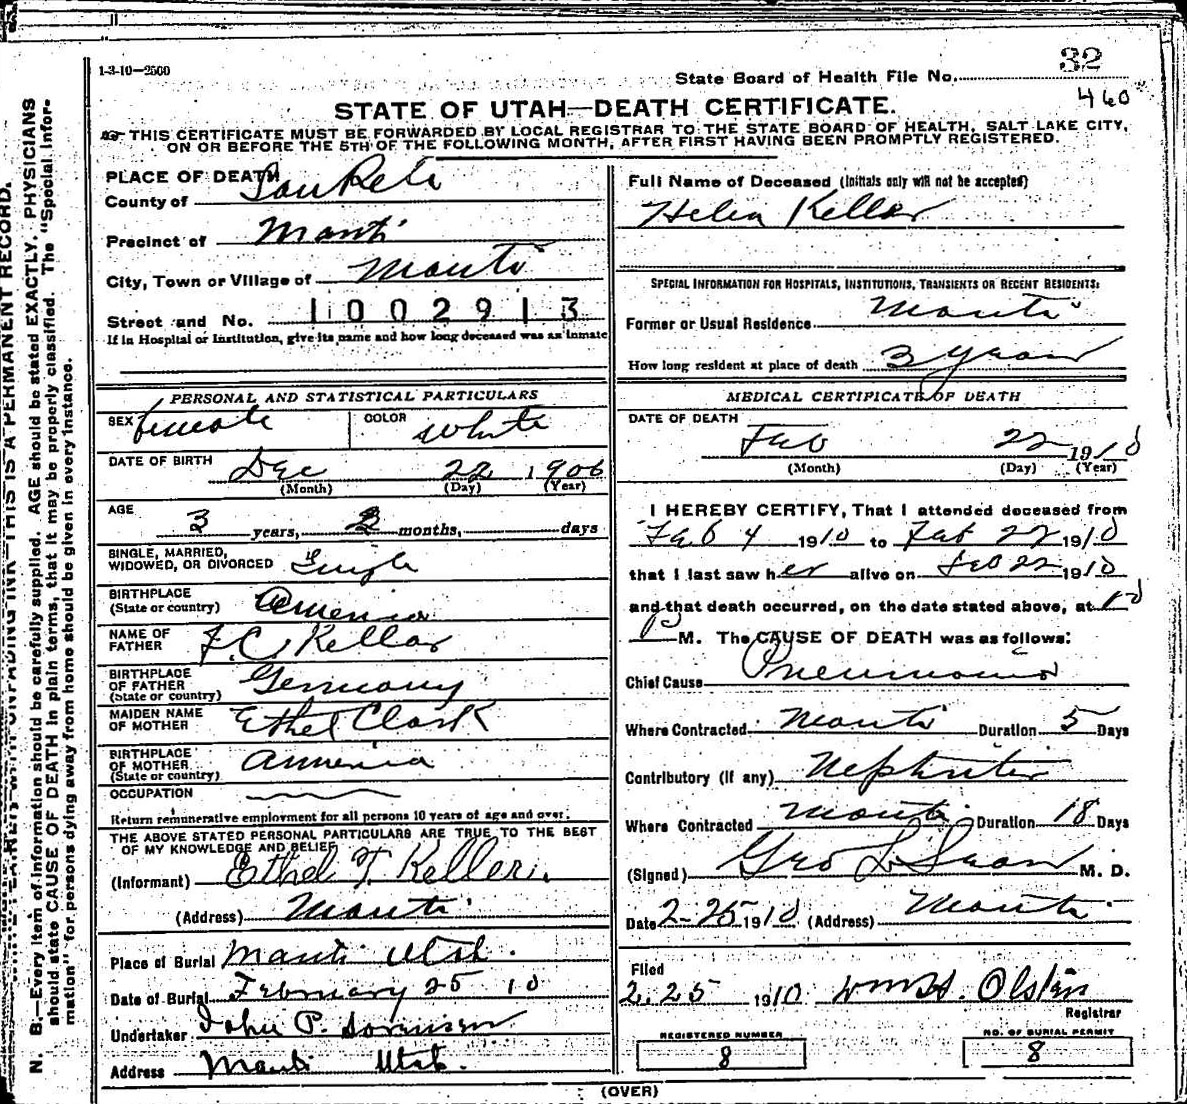 1-3-10—2500
State Board of Health File No. 32
460
STATE OF UTAH—DEATH CERTIFICATE.
THIS CERTIFICATE MUST BE FORWARDED BY LOCAL REGISTRAR TO THE STATE BOARD OF HEALTH, SALT LAKE CITY,
ON OR BEFORE THE 5TH OF THE FOLLOWING MONTH, AFTER FIRST HAVING BEEN PROMPTLY REGISTERED.
PLACE OF DEATH
County of SanPete
Precinct of Manti
City, Town or Village of Manti
Street and No. 1002913
If in Hospital or Institution, give its name and how long deceased was an inmate
PERSONAL AND STATISTICAL PARTICULARS
SEX female COLOR white
DATE OF BIRTH Dec 22 1906
(Month) (Day) (Year)
AGE 3 years, 2 months, days
SINGLE, MARRIED,
WIDOWED, OR DIVORCED Single
BIRTHPLACE
(State or country) America
NAME OF
FATHER F. C. Kellar
BIRTHPLACE
OF FATHER
(State or country) Germany
MAIDEN NAME
OF MOTHER Ethel Clark
BIRTHPLACE
OF MOTHER
(State or country) America
OCCUPATION
Return remunerative employment for all persons 10 years of age and over.
THE ABOVE STATED PERSONAL PARTICULARS ARE TRUE TO THE BEST
OF MY KNOWLEDGE AND BELIEF
(Informant) Ethel T. Keller.
(Address) Manti
Place of Burial Manti Utah.
Date of Burial February 25 10
Undertaker John P. Sorensen
Address Manti Utah.
Full Name of Deceased (Initials only will not be accepted)
Helen Kellar
SPECIAL INFORMATION FOR HOSPITALS, INSTITUTIONS, TRANSIENTS OR RECENT RESIDENTS:
Former or Usual Residence Manti
How long resident at place of death 3 years
MEDICAL CERTIFICATE OF DEATH
DATE OF DEATH
Feb 22 1910
(Month) (Day) (Year)
I HEREBY CERTIFY, That I attended deceased from
Feb 4 1910 to Feb 22 1910
that I last saw her alive on Feb 22 1910
and that death occurred, on the date stated above, at 10
P M. The CAUSE OF DEATH was as follows:
Chief Cause Pneumonia
Where Contracted Manti Duration 5 Days
Contributory (if any) Nephritis
Where Contracted Manti Duration 18 Days
(Signed) Geo L M. D.
Date 2-25 1910 (Address) Manti
Filed
2.25 1910 Wm H. Olsten
Registrar
REGISTERED NUMBER
8
NO. OF BURIAL PERMIT
8
(OVER)
THIS IS A PERMANENT RECORD.
N. B.—Every item of information should be carefully supplied. AGE should be stated EXACTLY. PHYSICIANS
should state CAUSE OF DEATH in plain terms, that it may be properly classified. The "Special Infor-
mation" for persons dying away from home should be given in every instance.